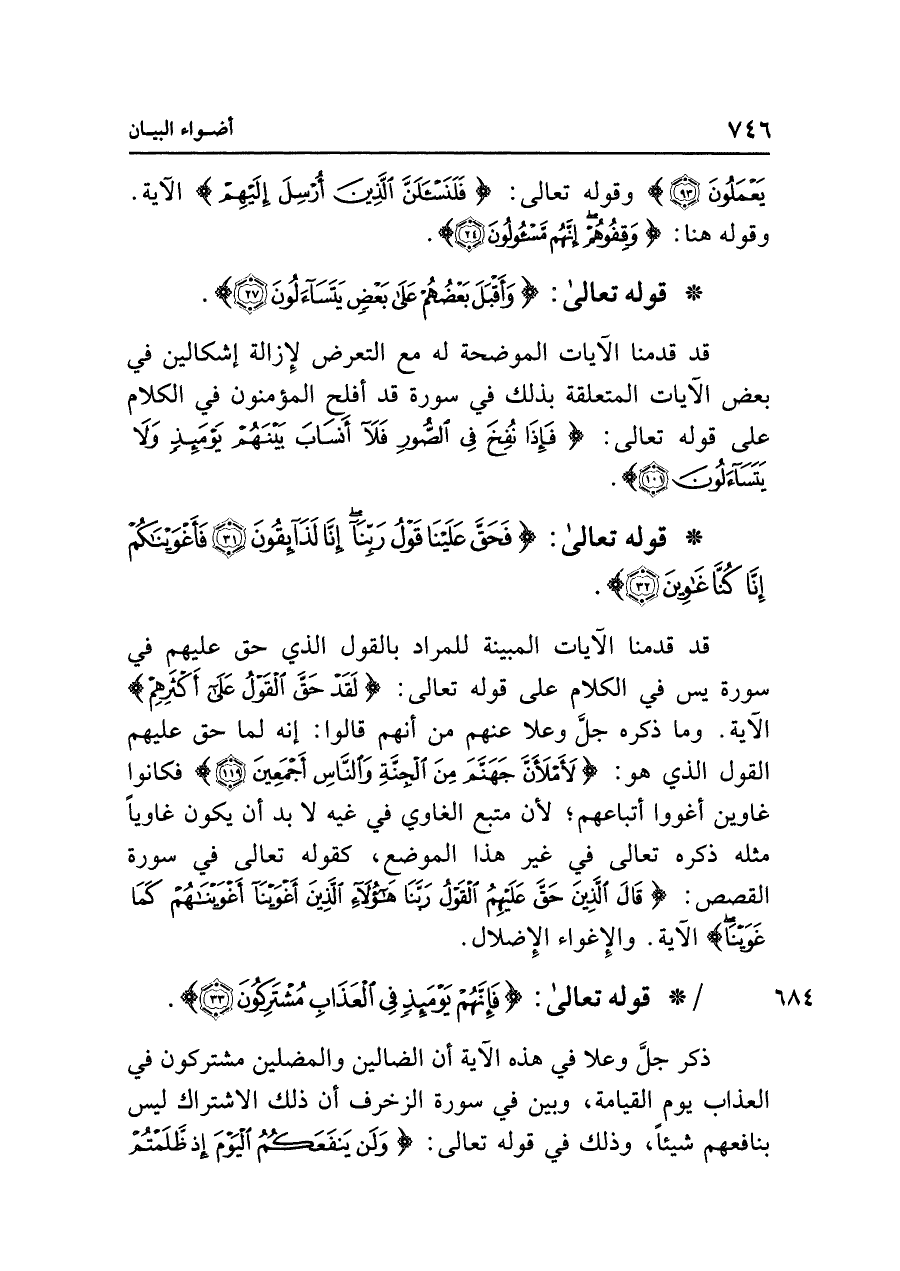 ٧٤٦ أضواء البيان
يَعْمَلُونَ ﴿٩٣﴾ وقوله تعالى: ﴿فَلَنَسْـَٔلَنَّ ٱلَّذِينَ أُرْسِلَ إِلَيْهِمْ﴾ الآية.
وقوله هنا: ﴿وَقِفُوهُمْۖ إِنَّهُم مَّسْـُٔولُونَ ﴿٢٤﴾﴾.
* قوله تعالىٰ: ﴿وَأَقْبَلَ بَعْضُهُمْ عَلَىٰ بَعْضٍ يَتَسَآءَلُونَ ﴿٢٧﴾﴾.
قد قدمنا الآيات الموضحة له مع التعرض لإزالة إشكالين في
بعض الآيات المتعلقة بذلك في سورة قد أفلح المؤمنون في الكلام
على قوله تعالى: ﴿فَإِذَا نُفِخَ فِى ٱلصُّورِ فَلَآ أَنسَابَ بَيْنَهُمْ يَوْمَئِذٍ وَلَا
يَتَسَآءَلُونَ ﴿١٠١﴾﴾.
* قوله تعالىٰ: ﴿فَحَقَّ عَلَيْنَا قَوْلُ رَبِّنَآۖ إِنَّا لَذَآئِقُونَ ﴿٣١﴾ فَأَغْوَيْنَـٰكُمْ
إِنَّا كُنَّا غَـٰوِينَ ﴿٣٢﴾﴾.
قد قدمنا الآيات المبينة للمراد بالقول الذي حق عليهم في
سورة يس في الكلام على قوله تعالى: ﴿لَقَدْ حَقَّ ٱلْقَوْلُ عَلَىٰٓ أَكْثَرِهِمْ﴾
الآية. وما ذكره جلَّ وعلا عنهم من أنهم قالوا: إنه لما حق عليهم
القول الذي هو: ﴿لَأَمْلَأَنَّ جَهَنَّمَ مِنَ ٱلْجِنَّةِ وَٱلنَّاسِ أَجْمَعِينَ ﴿١١٩﴾﴾ فكانوا
غاوين أغووا أتباعهم؛ لأن متبع الغاوي في غيه لا بد أن يكون غاوياً
مثله ذكره تعالى في غير هذا الموضع، كقوله تعالى في سورة
القصص: ﴿قَالَ ٱلَّذِينَ حَقَّ عَلَيْهِمُ ٱلْقَوْلُ رَبَّنَا هَـٰٓؤُلَآءِ ٱلَّذِينَ أَغْوَيْنَآ أَغْوَيْنَـٰهُمْ كَمَا
غَوَيْنَاۖ﴾ الآية. والإغواء الإضلال.
٦٨٤ / * قوله تعالىٰ: ﴿فَإِنَّهُمْ يَوْمَئِذٍ فِى ٱلْعَذَابِ مُشْتَرِكُونَ ﴿٣٣﴾﴾.
ذكر جلَّ وعلا في هذه الآية أن الضالين والمضلين مشتركون في
العذاب يوم القيامة، وبين في سورة الزخرف أن ذلك الاشتراك ليس
بنافعهم شيئاً، وذلك في قوله تعالى: ﴿وَلَن يَنفَعَكُمُ ٱلْيَوْمَ إِذ ظَّلَمْتُمْ